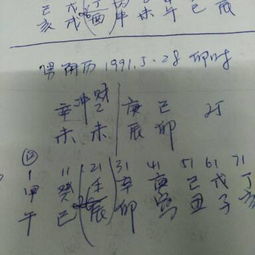 己 戊
亥 戌 酉 未 午 巳
男 阴历 1991.5.28 卯时
辛 冲 财 乙 庚 己
未 未 辰 卯
1 11 21 31 41 51 61 71
甲 癸 壬 辛 庚 己 戊 丁
午 巳 辰 卯 寅 丑 子 亥